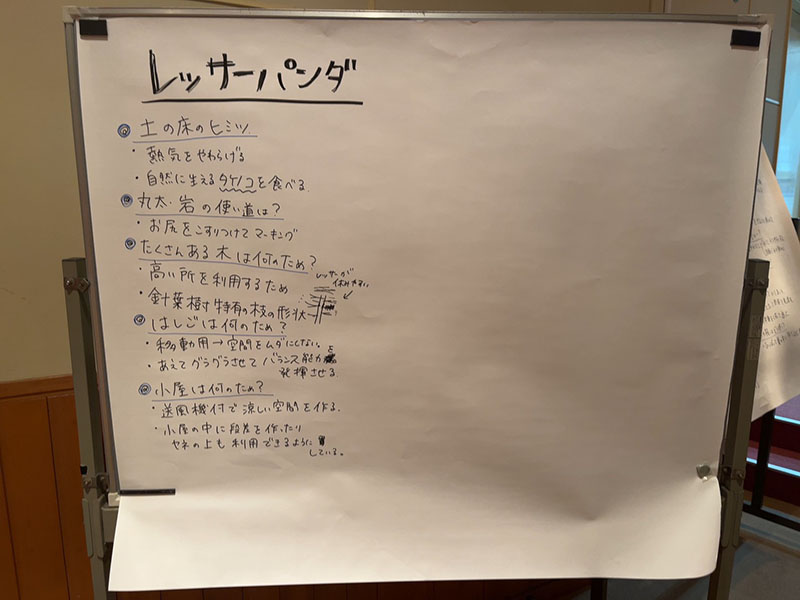 レッサーパンダ
◎ 土の床のヒミツ
・熱気をやわらげる
・自然に生えるタケノコを食べる
◎ 丸太・岩の使い道は?
・お尻をこすりつけてマーキング
◎ たくさんある木は何のため?
・高い所を利用するため
・針葉樹特有の枝の形状
レッサーが
休みやすい
◎ はしごは何のため?
・移動用→空間をムダにしない
・あえてグラグラさせてバランス能力を
発揮させる
◎ 小屋は何のため?
・送風機付で涼しい空間を作る.
・小屋の中に段差を作ったり
ヤネの上も利用できるように
している。